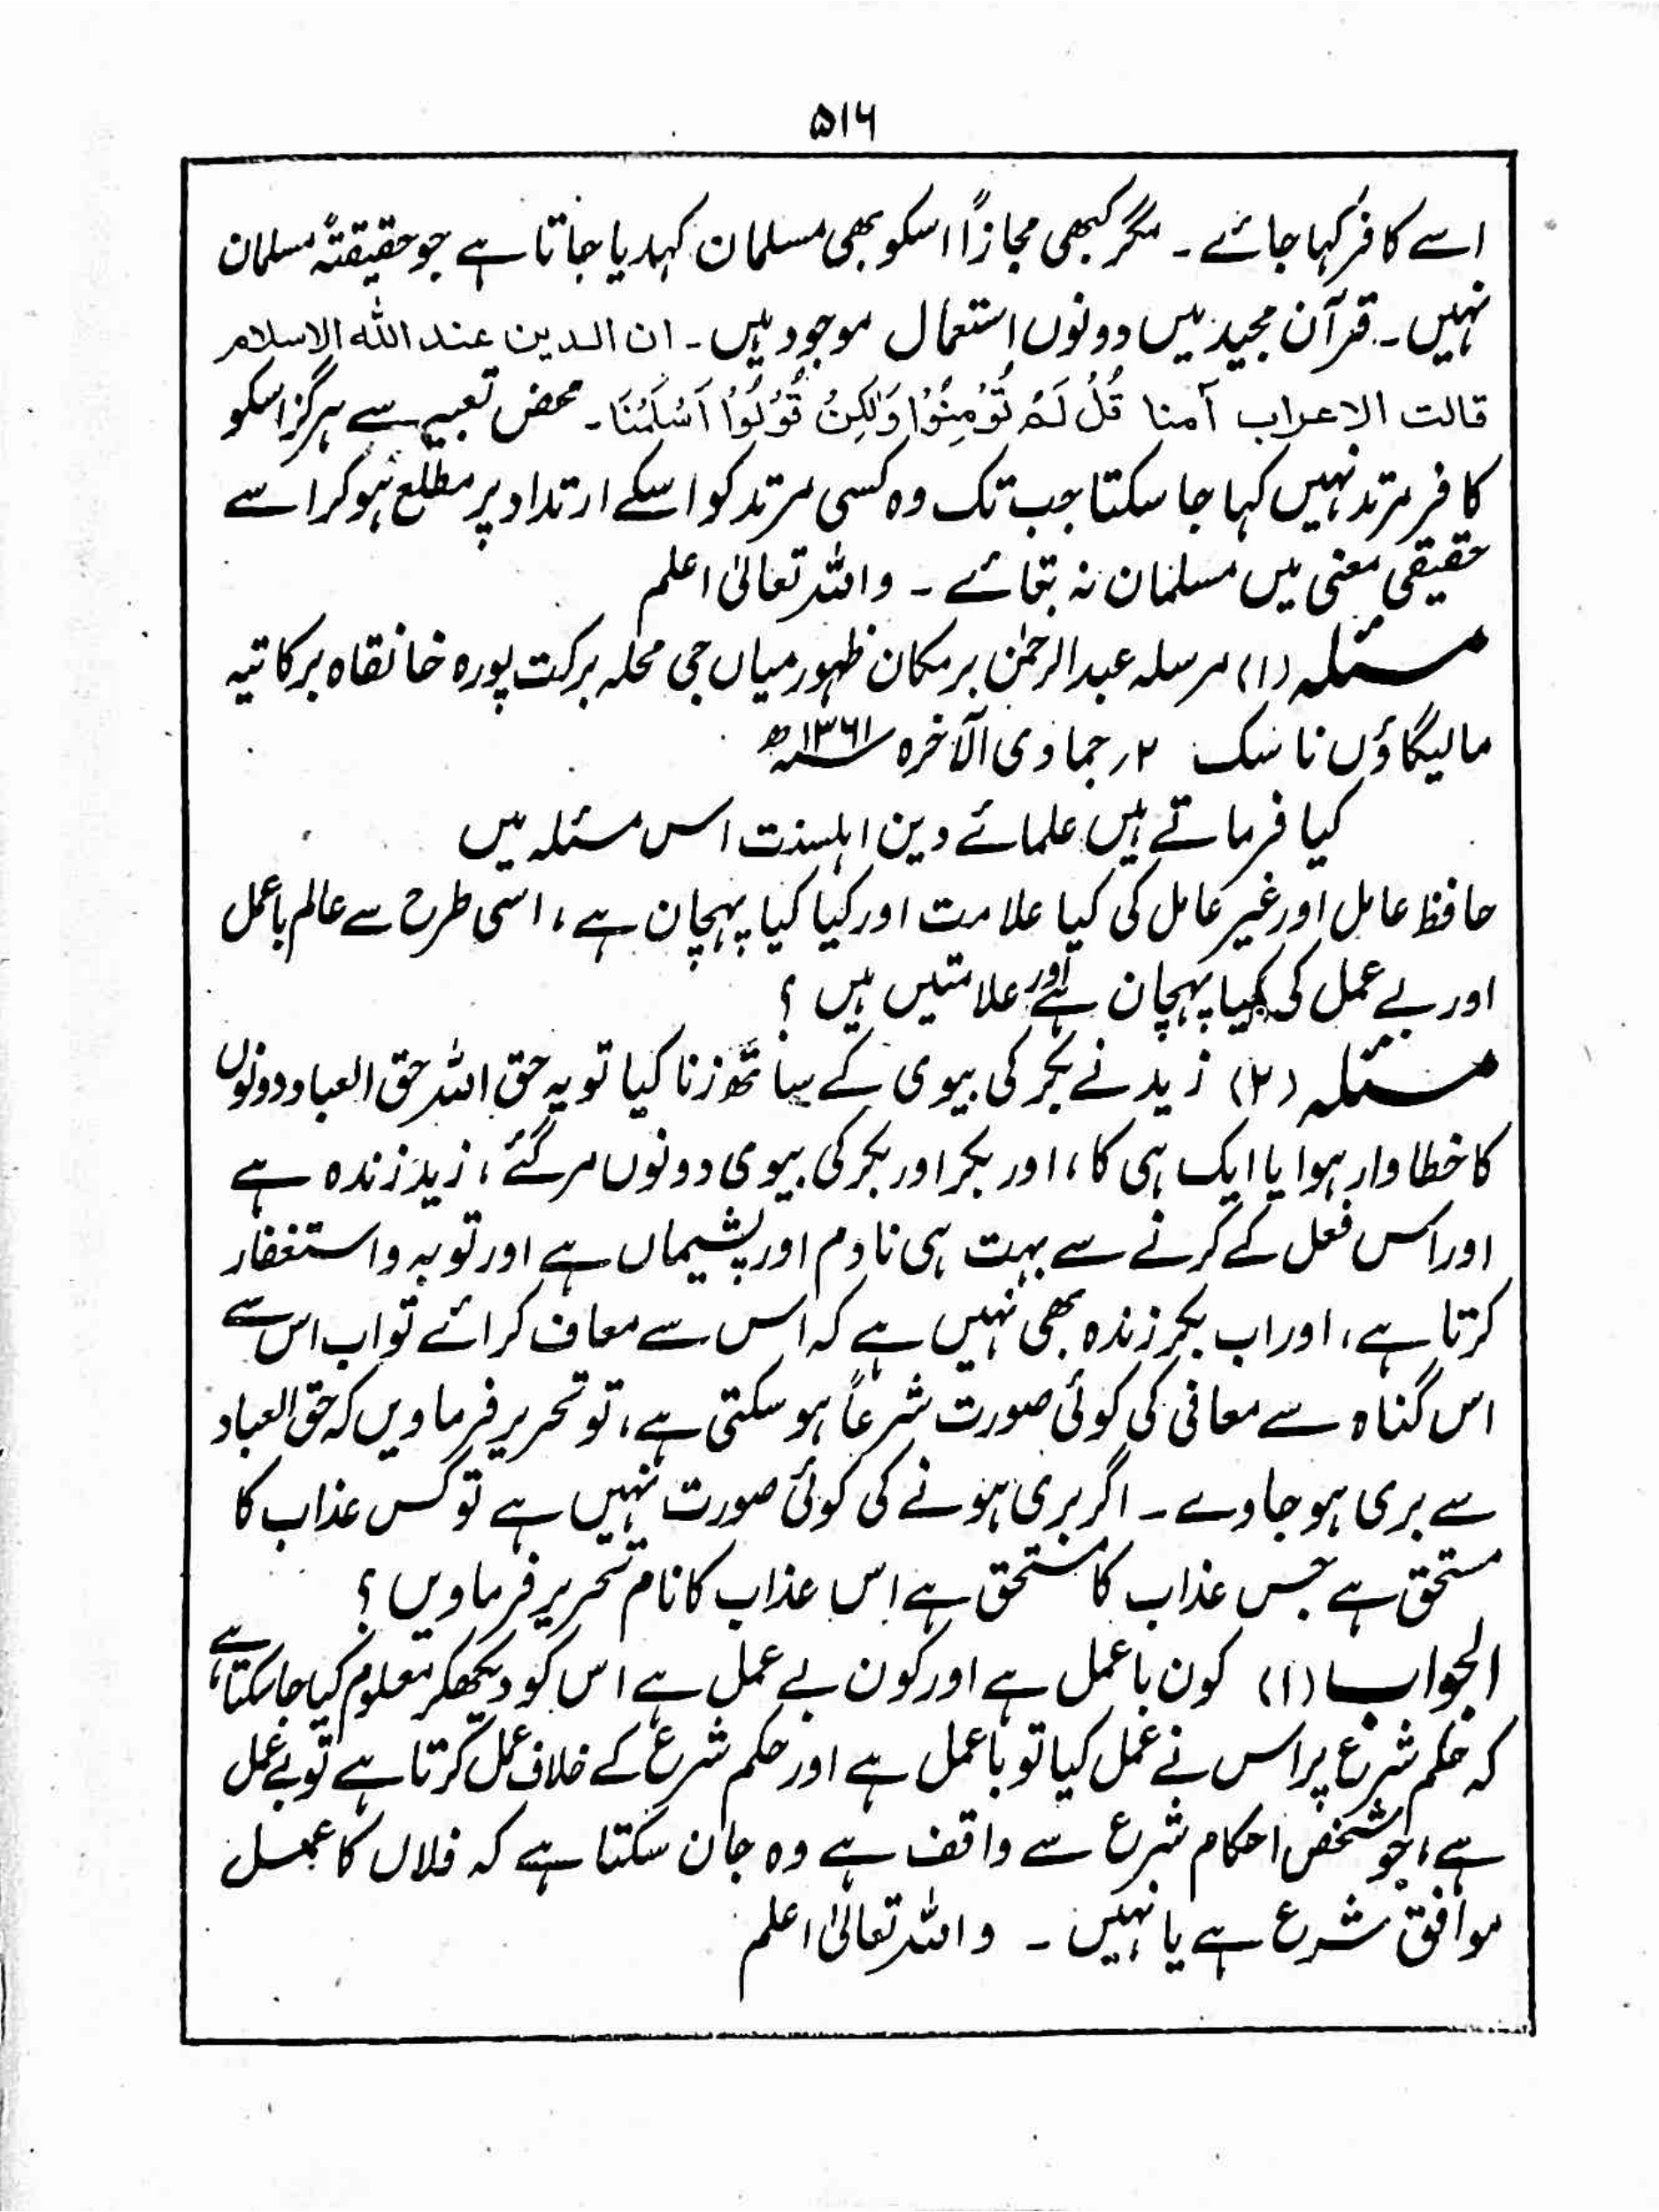 ۵۱۶
اسے کافر کہا جائے ۔ مگر کبھی مجازاً اسکو بھی مسلمان کہدیا جاتا ہے جو حقیقتۃً مسلمان
نہیں ۔ قرآن مجید میں دونوں استعمال موجود ہیں ۔ ان الدین عند اللہ الاسلام
قالت الاعراب آمنا قُلْ لَمْ تُؤْمِنُوْا وَلٰكِنْ قُوْلُوْا اَسْلَمْنَا ۔ محض تعبیر سے ہرگز اسکو
کافر مرتد نہیں کہا جا سکتا جب تک وہ کسی مرتد کو اسکے ارتداد پر مطلع ہوکر اسے
حقیقی معنی میں مسلمان نہ بتائے ۔ واللہ تعالیٰ اعلم
مسئلہ (۱) مرسلہ عبدالرحمٰن بر مکان ظہور میاں جی محلہ برکت پورہ خانقاہ برکاتیہ
مالیگاؤں ناسک ۲ر جمادی الآخرہ ۱۳۶۱ھ
کیا فرماتے ہیں علمائے دین اہلسنت اس مسئلہ میں
حافظ عامل اور غیر عامل کی کیا علامت اور کیا کیا پہچان ہے، اسی طرح سے عالم باعمل
اور بے عمل کی کیا پہچان ہے اور علامتیں ہیں ؟
مسئلہ (۲) زید نے بکر کی بیوی کے ساتھ زنا کیا تو یہ حق اللہ حق العباد دونوں
کا خطاوار ہوا یا ایک ہی کا، اور بکر اور بکر کی بیوی دونوں مر گئے، زید زندہ ہے
اور اس فعل کے کرنے سے بہت ہی نادم اور پشیماں ہے اور توبہ و استغفار
کرتا ہے، اور اب بکر زندہ بھی نہیں ہے کہ اس سے معاف کرائے تو اب اس سے
اس گناہ سے معافی کی کوئی صورت شرعاً ہو سکتی ہے، تو تحریر فرماویں کہ حق العباد
سے بری ہو جاوے ۔ اگر بری ہونے کی کوئی صورت نہیں ہے تو کس عذاب کا
مستحق ہے جس عذاب کا مستحق ہے اس عذاب کا نام تحریر فرماویں ؟
الجواب (۱) کون باعمل ہے اور کون بے عمل ہے اس کو دیکھکر معلوم کیا جا سکتا ہے،
کہ حکم شرع پر اس نے عمل کیا تو باعمل ہے اور حکم شرع کے خلاف عمل کرتا ہے تو بے عمل
ہے، جو شخص احکام شرع سے واقف ہے وہ جان سکتا ہے کہ فلاں کا عمل
موافق شرع ہے یا نہیں ۔ واللہ تعالیٰ اعلم